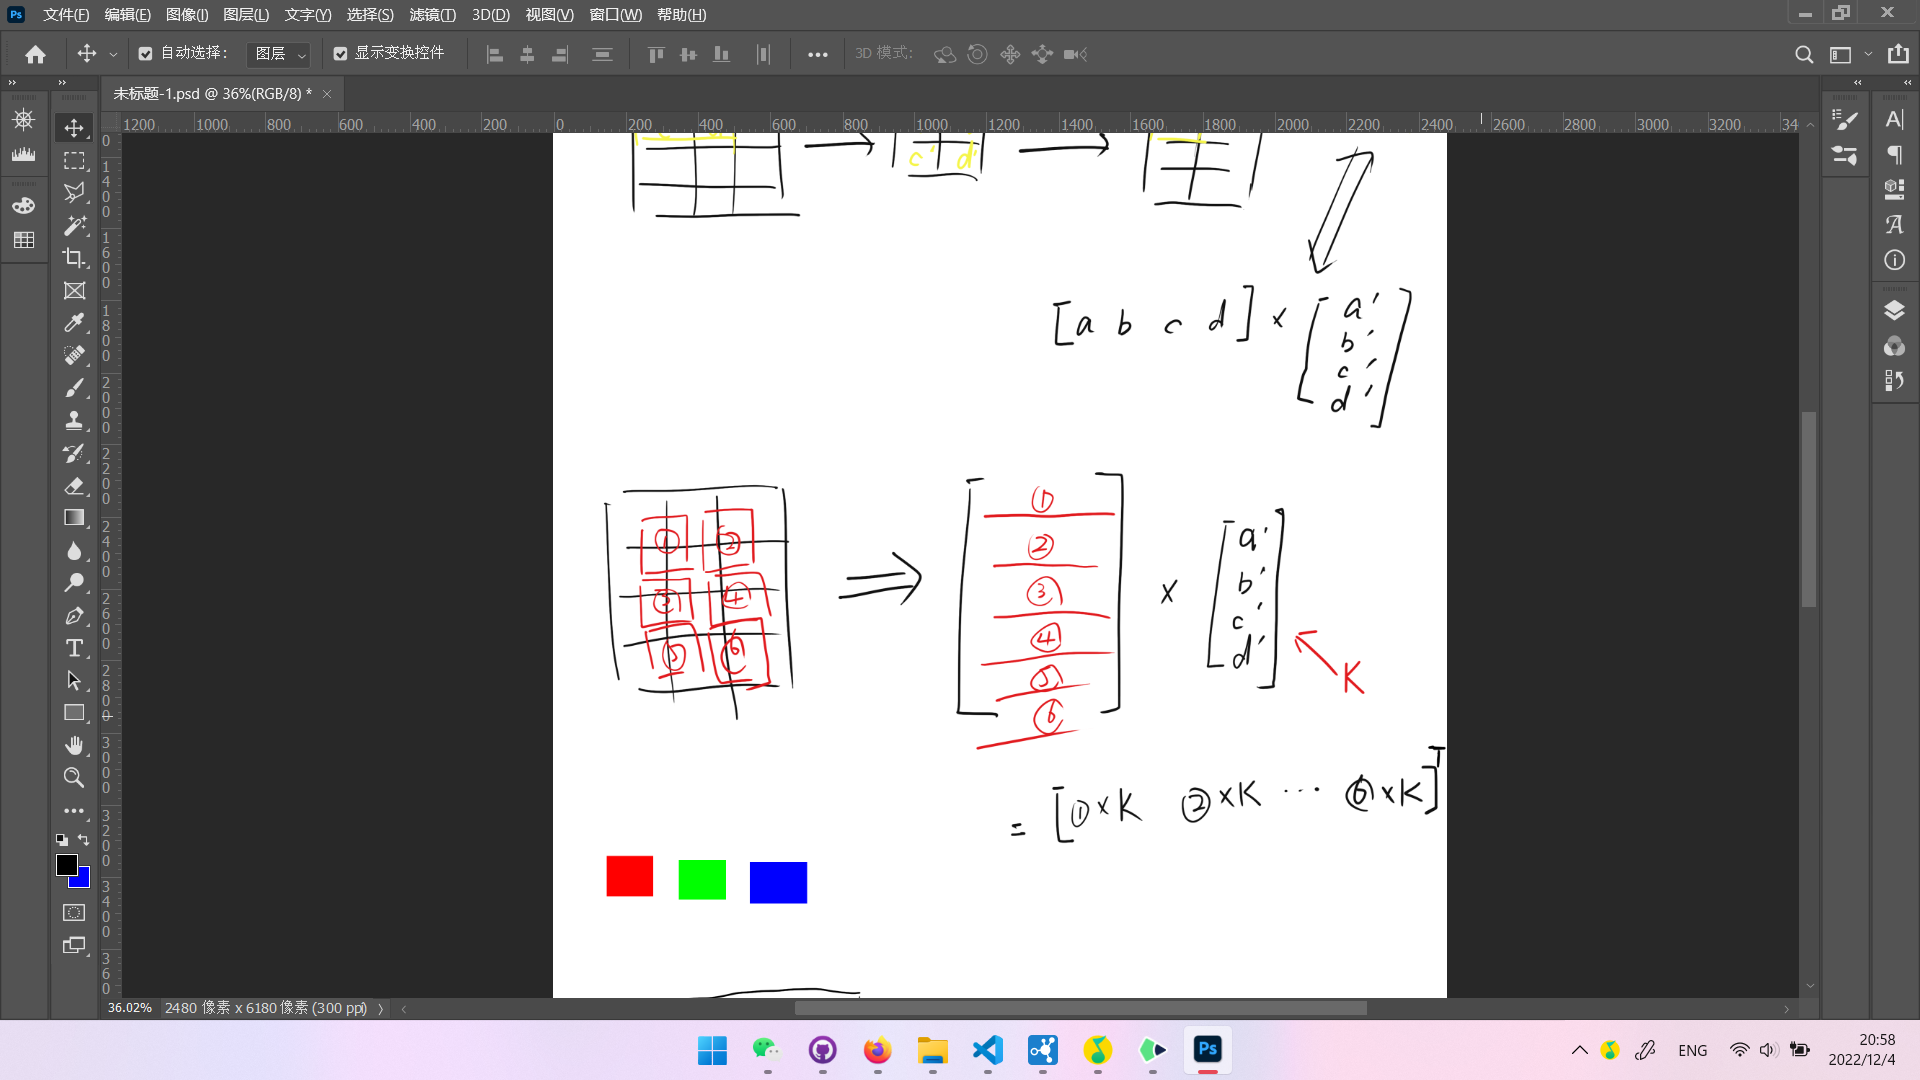 Ps 文件(F) 编辑(E) 图像(I) 图层(L) 文字(Y) 选择(S) 滤镜(T) 3D(D) 视图(V) 窗口(W) 帮助(H)
自动选择: 图层 显示变换控件 3D 模式:
未标题-1.psd @ 36%(RGB/8) * ×
1200 1000 800 600 400 200 0 200 400 600 800 1000 1200 1400 1600 1800 2000 2200 2400 2600 2800 3000 3200 34
0
1400
1600
1800
2000
2200
2400
2600
2800
3000
3200
3400
360
c' d'
[a b c d] × [a' b' c' d']
① ②
③ ④
⑤ ⑥
①
②
③
④
⑤
⑥
×
a'
b'
c'
d'
K
= [①×K ②×K ··· ⑥×K]T
36.02% 2480 像素 x 6180 像素 (300 ppi)
Ps
ENG
20:58
2022/12/4